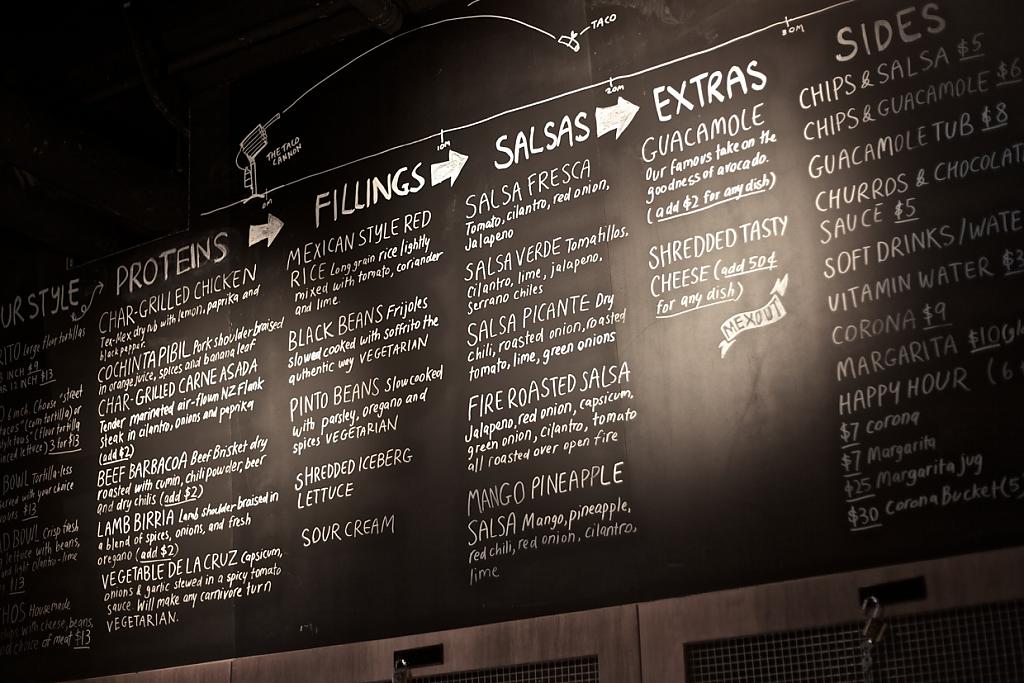 TACO
THE TACO
CANNON
0M
10M
20M
30M
UR STYLE
RITO large flour tortillas
INCH $9
12 INCH $13
6 inch. Choose "street
tacos" (corn tortilla) or
(flour tortilla
3 for $13
BOWL Tortilla-less
serves with your choice
$13
AD BOWL Crisp fresh
lettuce with beans,
and light cilantro-lime
$13
CHOS Housemade
chips with cheese, beans,
and choice of meat $13
PROTEINS
CHAR-GRILLED CHICKEN
Tex-Mex dry rub with lemon, paprika and
black pepper.
COCHINTA PIBIL Pork shoulder braised
in orange juice, spices and banana leaf
CHAR-GRILLED CARNE ASADA
Tender marinated air-flown NZ Flank
steak in cilantro, onions and paprika
(add $2)
BEEF BARBACOA Beef Brisket dry
roasted with cumin, chili powder, beer
and dry chilis (add $2)
LAMB BIRRIA Lamb shoulder braised in
a blend of spices, onions, and fresh
oregano (add $2)
VEGETABLE DE LA CRUZ Capsicum,
onions & garlic stewed in a spicy tomato
sauce. Will make any carnivore turn
VEGETARIAN.
FILLINGS
MEXICAN STYLE RED
RICE Long grain rice lightly
mixed with tomato, coriander
and lime.
BLACK BEANS Frijoles
slowed cooked with soffrito the
authentic way VEGETARIAN
PINTO BEANS Slow cooked
with parsley, oregano and
spices VEGETARIAN
SHREDDED ICEBERG
LETTUCE
SOUR CREAM
SALSAS
SALSA FRESCA
Tomato, cilantro, red onion,
Jalapeno
SALSA VERDE Tomatillos,
cilantro, lime, jalapeno,
serrano chiles
SALSA PICANTE Dry
chili, roasted onion, roasted
tomato, lime, green onions
FIRE ROASTED SALSA
Jalapeno, red onion, capsicum,
green onion, cilantro, tomato
all roasted over open fire
MANGO PINEAPPLE
SALSA Mango, pineapple,
red chili, red onion, cilantro,
lime
EXTRAS
GUACAMOLE
Our famous take on the
goodness of avocado.
(add $2 for any dish)
SHREDDED TASTY
CHEESE (add 50¢
for any dish)
MEXOUT
SIDES
CHIPS & SALSA $5
CHIPS & GUACAMOLE $6
GUACAMOLE TUB $8
CHURROS & CHOCOLAT
SAUCE $5
SOFT DRINKS / WATE
VITAMIN WATER $3
CORONA $9
MARGARITA $10
HAPPY HOUR (6
$7 Corona
$7 Margarita
$25 Margarita jug
$30 Corona Bucket (5